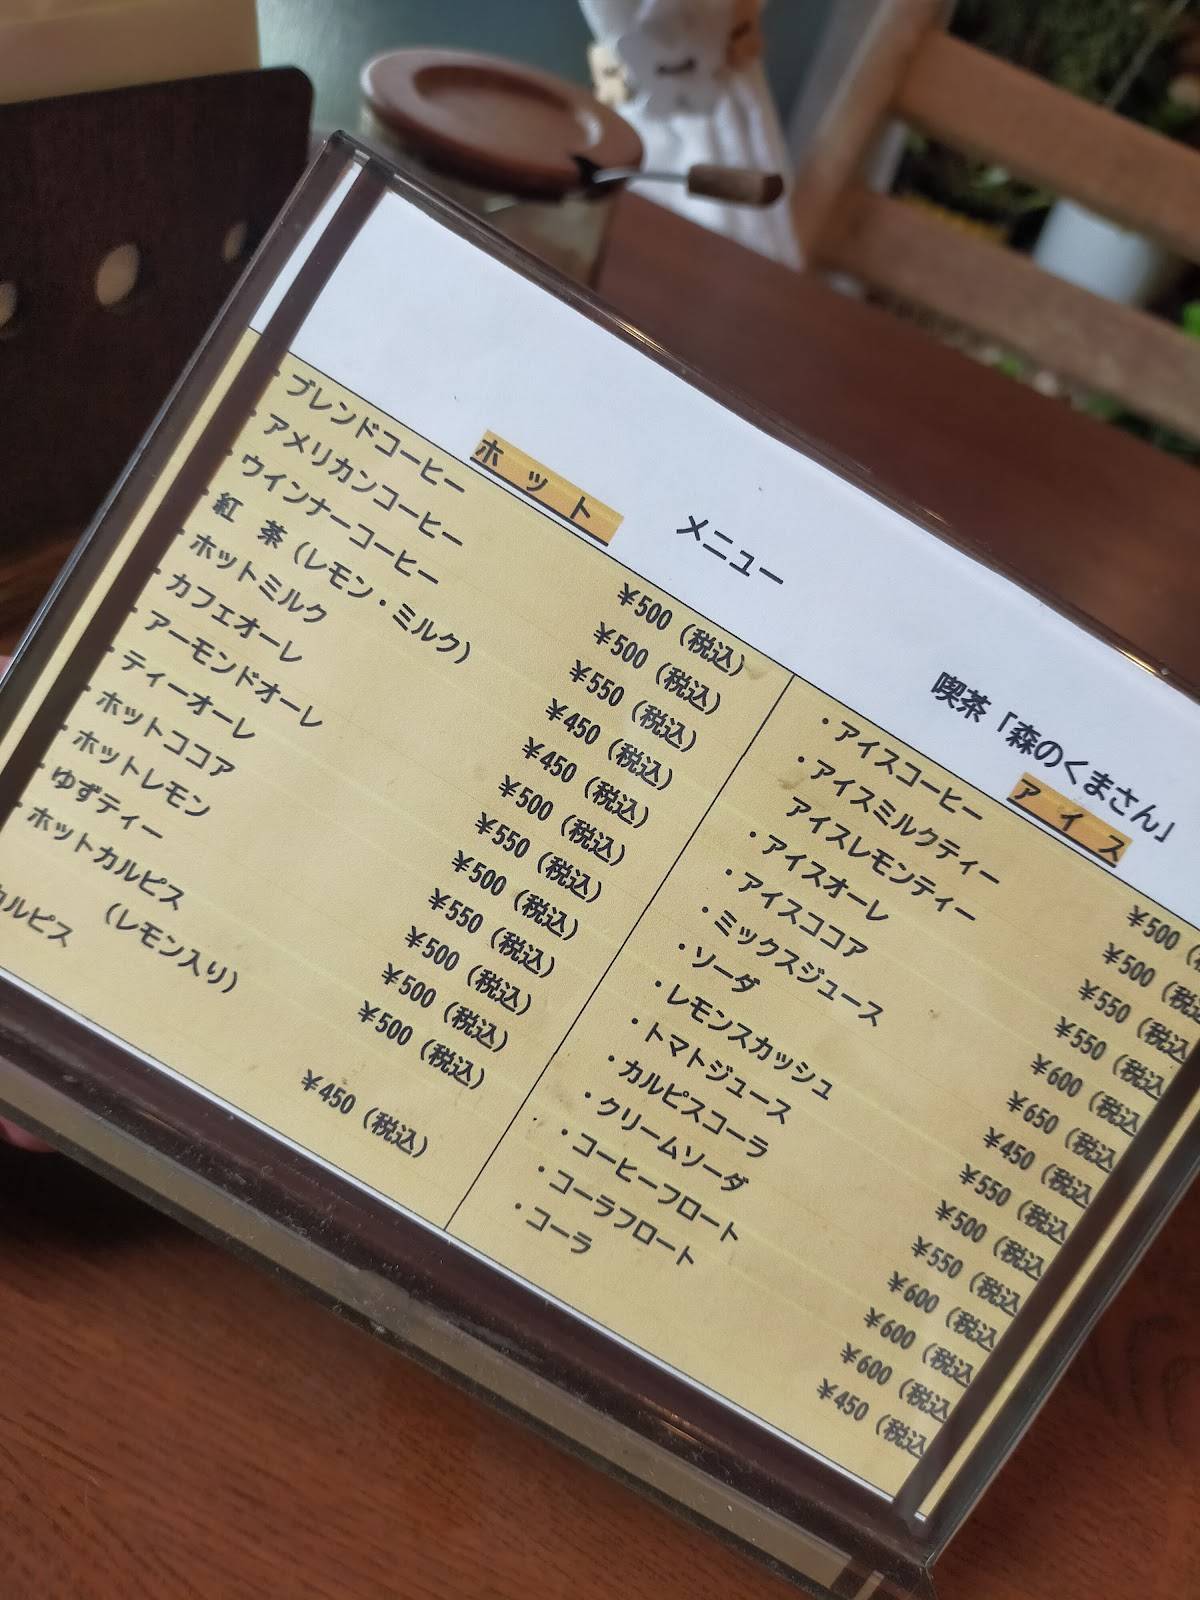 メニュー 喫茶「森のくまさん」
ホット
・ブレンドコーヒー ¥500(税込)
・アメリカンコーヒー ¥500(税込)
・ウインナーコーヒー ¥550(税込)
・紅 茶(レモン・ミルク) ¥450(税込)
・ホットミルク ¥450(税込)
・カフェオーレ ¥500(税込)
・アーモンドオーレ ¥550(税込)
・ティーオーレ ¥500(税込)
・ホットココア ¥550(税込)
・ホットレモン ¥500(税込)
・ゆずティー ¥500(税込)
・ホットカルピス ¥500(税込)
(レモン入り)
カルピス ¥450(税込)
アイス
・アイスコーヒー ¥500(
・アイスミルクティー ¥500(税込
アイスレモンティー ¥550(税込
・アイスオーレ ¥550(税込
・アイスココア ¥600(税込
・ミックスジュース ¥650(税込
・ソーダ ¥450(税込
・レモンスカッシュ ¥550(税込
・トマトジュース ¥500(税込
・カルピスコーラ ¥550(税込
・クリームソーダ ¥600(税込
・コーヒーフロート ¥600(税込
・コーラフロート ¥600(税込
・コーラ ¥450(税込